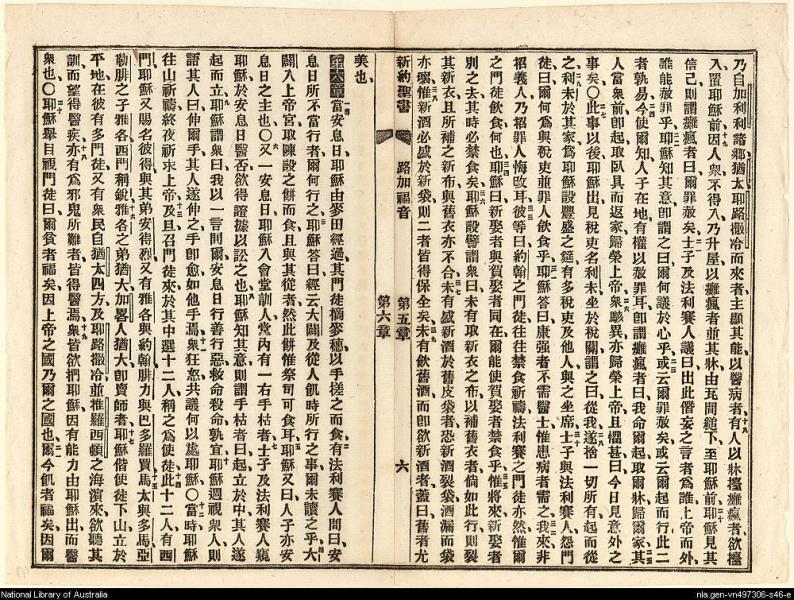 乃自加利利諸鄉猶太耶路撒冷而來者主顯其能以醫病者有人以牀檯癱瘋者欲檯
入置耶穌前因人衆不得入乃升屋以癱瘋者並其牀由瓦間縋下至耶穌前耶穌見其
信己則謂癱瘋者曰爾罪赦矣士子及法利賽人議曰出此僭妄之言者爲誰上帝而外
誰能赦罪乎耶穌知其意卽謂之曰爾何議於心乎或云爾罪赦矣或云爾起而行此二
者孰易今使爾知人子在地有權以赦罪耳卽謂癱瘋者曰我命爾起取爾牀歸爾家其
人當衆前卽起取臥具而返家歸榮上帝衆駭異亦歸榮上帝且懼甚曰今日見意外之
事矣〇此事以後耶穌出見稅吏名利未坐於稅關謂之曰從我遂捨一切所有起而從
之利未於其家爲耶穌設豐盛之筵有多稅吏及他人與之坐席士子與法利賽人怨門
徒曰爾何爲與稅吏並罪人飲食乎耶穌答曰康强者不需醫士惟患病者需之我來非
招義人乃招罪人悔改耳彼等曰約翰之門徒往往禁食祈禱法利賽之門徒亦然惟爾
之門徒飲食何也耶穌曰新娶者與賀娶者同在爾能使賀娶者禁食乎惟將來新娶者
別之去其時必禁食矣耶穌設譬謂衆曰未有取新衣之布以補舊衣者倘如此行則裂
其新衣且所補之新布與舊衣亦不合未有盛新酒於舊皮袋者恐新酒裂袋酒漏而袋
亦壞惟新酒必盛於新袋則二者皆得保全矣未有飲舊酒而卽欲新酒者蓋曰舊者尤
新約聖書 路加福音 第五章 第六章 六
美也
第六章當安息日耶穌由麥田經過其門徒摘麥穗以手搓之而食有法利賽人問曰安
息日所不當行者爾何行之耶穌答曰經云大闢及從人飢時所行之事爾未讀之乎大
闢入上帝宮取陳設之餅而食且與其從者然此餅惟祭司可食耳耶穌又曰人子亦安
息日之主也〇又一安息日耶穌入會堂訓人堂內有一右手枯者士子及法利賽人窺
耶穌於安息日醫否欲得證據以訟之也耶穌知其意則謂手枯者曰起立於中其人遂
起而立耶穌謂衆曰我以一言問爾安息日行善行惡救命殺命孰宜耶穌週視衆人則
語其人曰伸爾手其人遂伸之手卽愈如他手焉衆狂怒共議何以處耶穌〇當時耶穌
往山祈禱終夜祈求上帝及旦召門徒來於其中選十二人稱之爲使徒此十二人有西
門耶穌又賜名彼得與其弟安得烈又有雅各與約翰腓力與巴多羅買馬太與多馬亞
勒腓之子雅各西門稱銳雅各之弟猶大加畧人猶大卽賣師者耶穌偕使徒下山立於
平地在彼有多門徒又有衆民自猶太四方及耶路撒冷並推羅西頓之海濱來欲聽其
訓而望得醫疾亦有爲邪鬼所難者皆得醫焉衆皆欲捫耶穌因有能力由耶穌出而醫
衆也〇耶穌舉目視門徒曰爾貧者福矣因上帝之國乃爾之國也爾今飢者福矣因爾
National Library of Australia
nla.gen-vn497306-s46-e